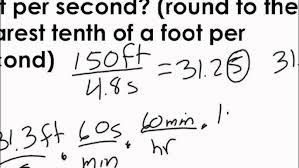 t per second? (round to the
arest tenth of a foot per
ond) 150ft / 4.8s = 31.25
31.3ft . 60s / min . 60min / hr . 1